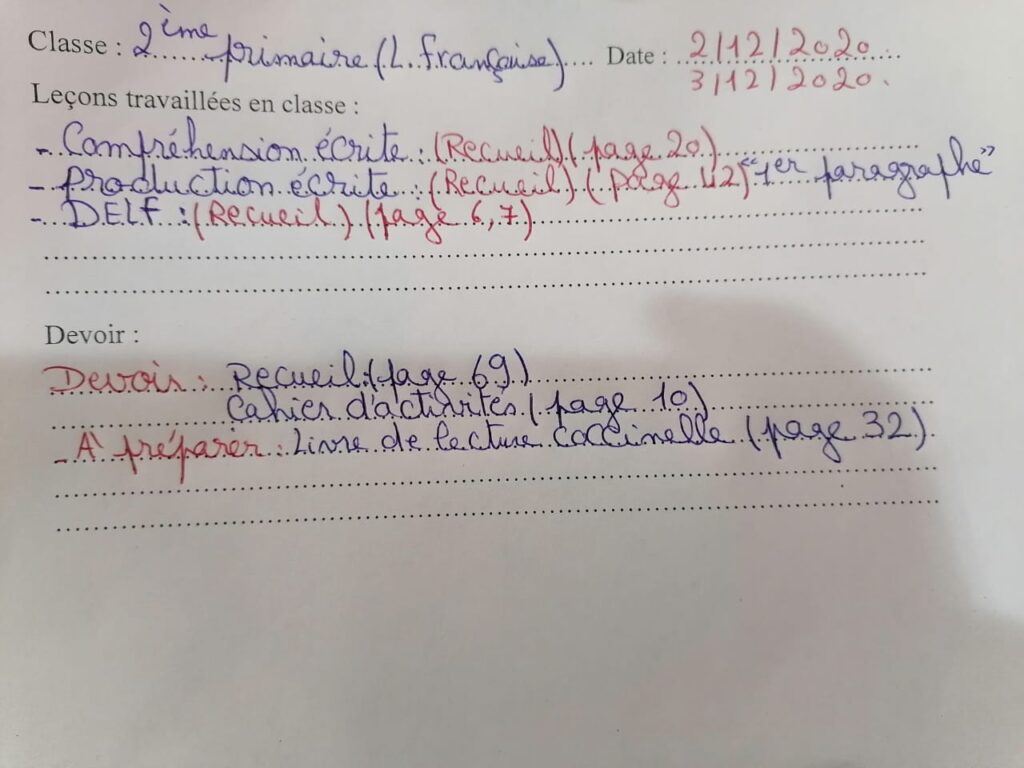 Classe : 2ème primaire (L. Française) Date : 2/12/2020
3/12/2020.
Leçons travaillées en classe :
- Compréhension écrite : (Recueil) (page 20)
- Production écrite : (Recueil) (page 42) "1er paragraphe"
- DELF : (Recueil) (page 6,7)
Devoir :
Devoir : Recueil : (page 69)
Cahier d'activités (page 10)
- À préparer : Livre de lecture Coccinelle (page 32).